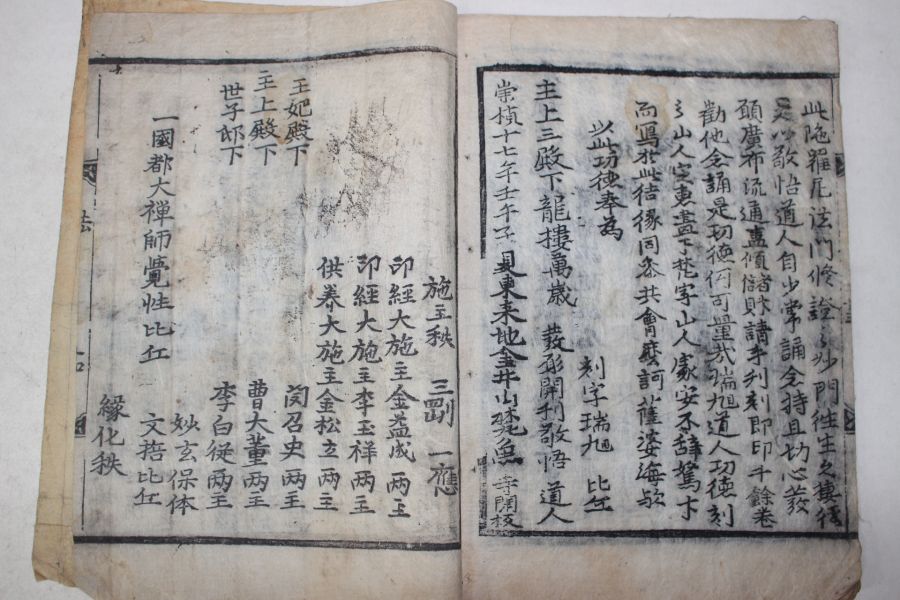 此陁羅尼法門修證之妙門徃生之捷徑
是以敬悟道人自少常誦念持且功心發
願廣布流通盡傾儲財請手刊刻即印千餘卷
勸他念誦是功德何可量哉瑞旭道人功德刻
之山人定惠盡之梵字山人處安不辞駑卞
而寫於此結緣同叅共會摩訶薩婆海歟
以此功德奉為
刻字瑞旭 比丘
主上三殿下龍樓萬歲 發弥開刊敬悟 道人
崇禎十七年壬午子 月東萊地金井山梵魚 寺開板
施主秩 三 一應
印經大施主金益成 兩主
印經大施主李玉祥 兩主
供養大施主金松立 兩主
王妃殿下 閔召史 兩主
主上殿下 曹大董 兩主
世子邸下 李白從 兩主
妙玄保体
一國都大禪師覺性比丘 文捂比丘
緣化秩
法